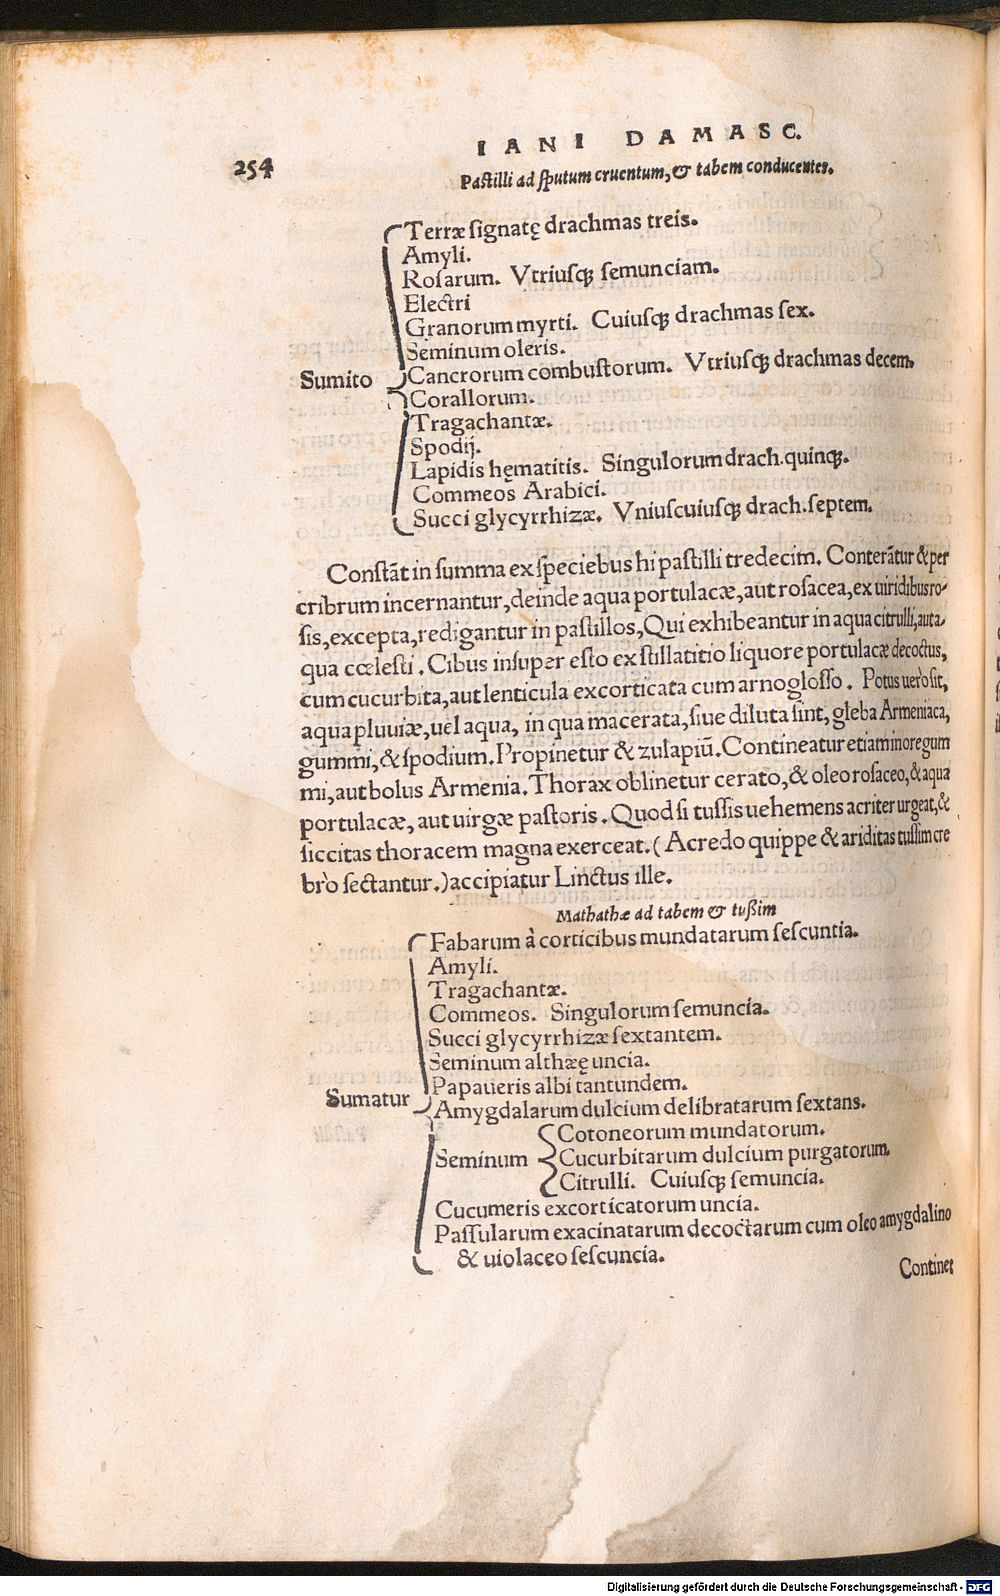 IANI DAMASC.
254
Pastilli ad sputum cruentum, & tabem conducentes.
Terræ signatę drachmas treis.
Amyli.
Rosarum. Vtriusq; semunciam.
Electri
Granorum myrti. Cuiusq; drachmas sex.
Seminum oleris.
Sumito Cancrorum combustorum. Vtriusq; drachmas decem.
Corallorum.
Tragachantæ.
Spodij.
Lapidis hęmatitis. Singulorum drach. quinq;.
Commeos Arabici.
Succi glycyrrhizæ. Vniuscuiusq; drach. septem.
Constāt in summa ex speciebus hi pastilli tredecim. Conterātur & per
cribrum incernantur, deinde aqua portulacæ, aut rosacea, ex uiridibus ro-
sis, excepta, redigantur in pastillos, Qui exhibeantur in aqua citrulli, aut a-
qua cœlesti. Cibus insuper esto ex stillatitio liquore portulacæ decoctus,
cum cucurbita, aut lenticula excorticata cum arnoglosso. Potus uerò sit,
aqua pluuiæ, uel aqua, in qua macerata, siue diluta sint, gleba Armeniaca,
gummi, & spodium. Propinetur & zulapiū. Contineatur etiam in ore gum
mi, aut bolus Armenia. Thorax oblinetur cerato, & oleo rosaceo, & aqua
portulacæ, aut uirgæ pastoris. Quod si tussis uehemens acriter urgeat, &
siccitas thoracem magna exerceat. (Acredo quippe & ariditas tussim cre
brò sectantur.) accipiatur Linctus ille.
Mathathæ ad tabem & tußim
Fabarum à corticibus mundatarum sescuntia.
Amyli.
Tragachantæ.
Commeos. Singulorum semuncia.
Succi glycyrrhizæ sextantem.
Seminum althæę uncia.
Papaueris albi tantundem.
Sumatur Amygdalarum dulcium delibratarum sextans.
Cotoneorum mundatorum.
Seminum Cucurbitarum dulcium purgatorum.
Citrulli. Cuiusq; semuncia.
Cucumeris excorticatorum uncia.
Passularum exacinatarum decoctarum cum oleo amygdalino
& uiolaceo sescuncia.
Continet
Digitalisierung gefördert durch die Deutsche Forschungsgemeinschaft - DFG